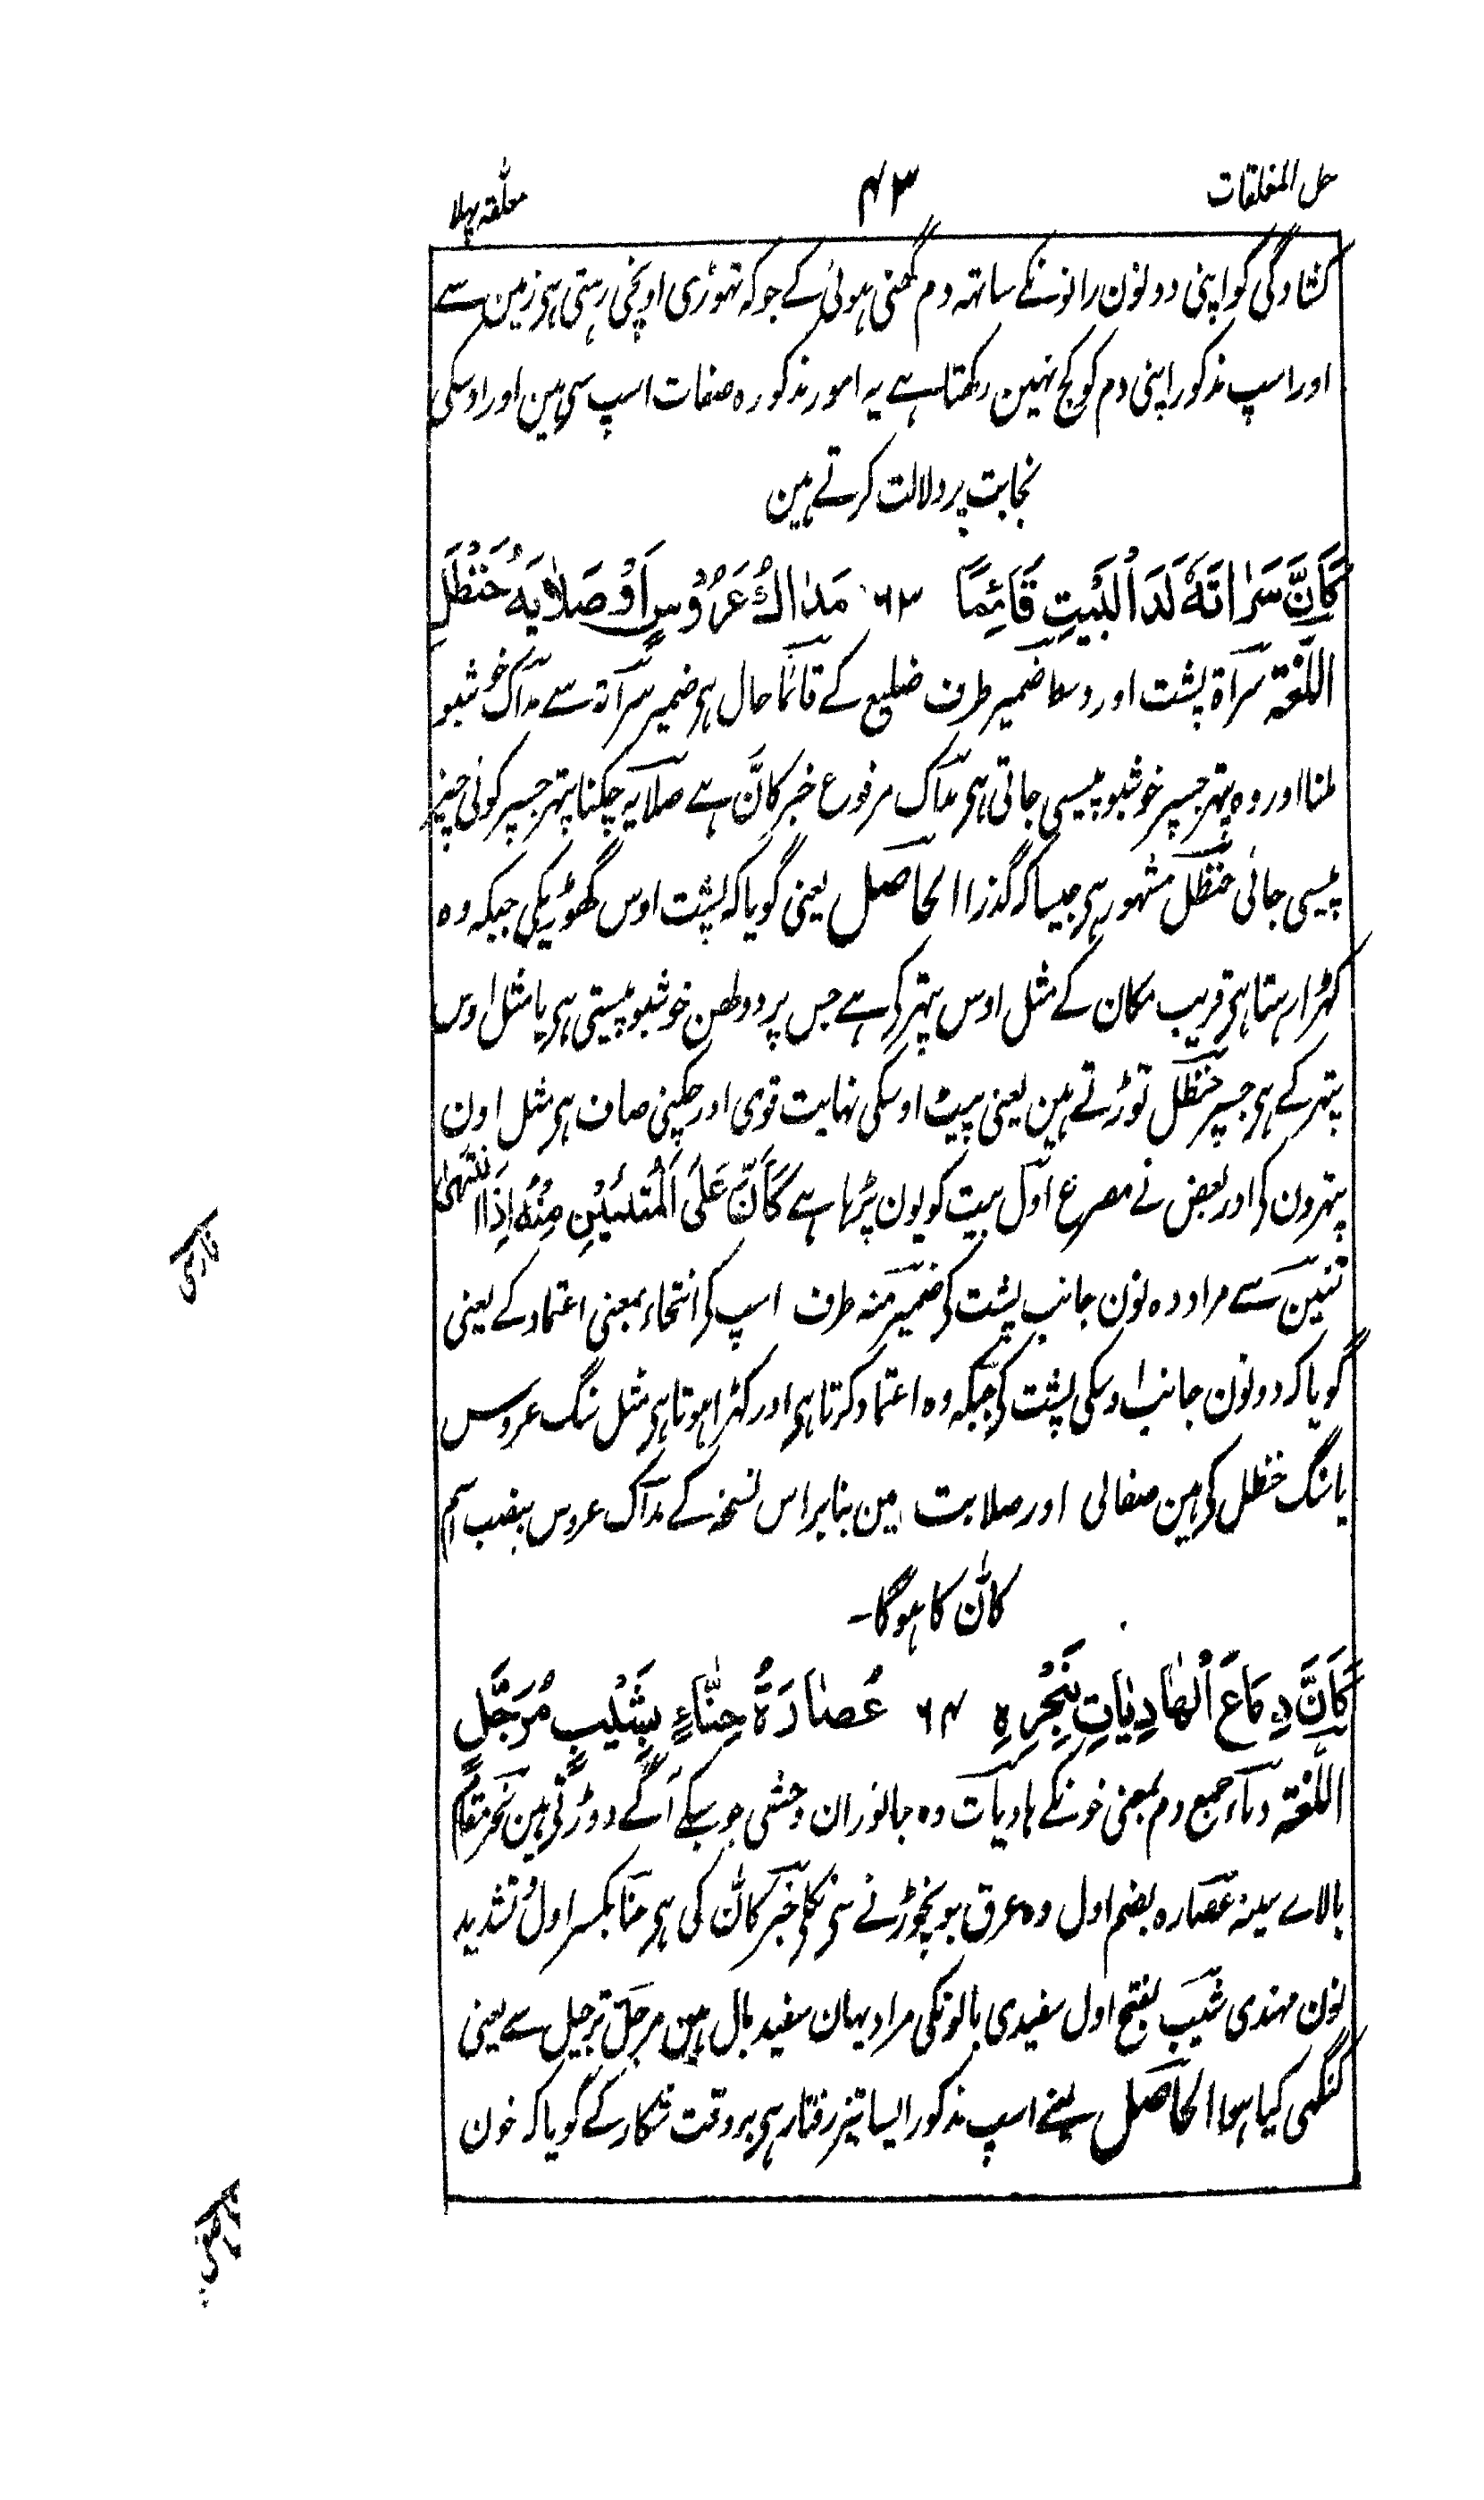 حل المغلقات ۴۳ معلقہ پہلا
کشادگی کو اپنی دونون رانونکے ساتھ دم گھنی ہوئی کے جو کہ تہوڑی اونچی رہتی ہی زمین سے
اور اسپ مذکور اپنی دم کو کج نہین رکھتا ہے یہ امور مذکورہ صفات اسپ سی ہین اور اوسکی
نجابت پر دلالت کرتے ہین
كَاَنَّ سَرَاتَهٗ لَدَ الْبَيْتِ قَائِمًا ۶۳ مَدَاكُ عَرُوْسٍ اَوْ صَلَايَةُ حَنْظَلِ
اللّغۃ سراۃ پشت اور وسکا ضمیر طرف ضلیع کے قائما حال ہی ضمیر سراتہ سے مداک خوشبو
ملنا اور وہ پتہر جسپر خوشبو پیسی جاتی ہی مداک مرفوع خبر کانّ ہے صلایہ چکنا پتہر جسپر کوئی چیز
پیسی جائی حنظل مشہور ہی جیسا کہ گذرا الحاصل یعنی گویا کہ پشت اوس گھوڑیکی جبکہ وہ
کہڑا رہتا ہی قریب مکان کے مثل اوس پتہر کی ہے جس پر دولھن خوشبو پیستی ہی یا مثل اوس
پتہر کے ہی جسپر حنظل توڑتے ہین یعنی پیٹ اوسکی نہایت قوی اور چکنی صاف ہی مثل اون
پتہرون کی اور بعض نے مصرع اول بیت کو یون پڑہا ہے كَاَنَّ عَلَى الْمَتْنَيْنِ مِنْهُ اِذَا انْتَحٰى
متنین سے مراد دونون جانب پشت کی ضمیر منہ طرف اسپ کی انتحاء بمعنی اعتماد کے یعنی
گویا کہ دونون جانب اوسکی پشت کی جبکہ وہ اعتماد کرتا ہی اور کہڑا ہوتا ہی مثل سنگ عروس
یا سنگ حنظل کی ہین صفائی اور صلابت مین بنابر اس نسخہ کے مداک عروس بنصب اسم
کانّ کا ہوگا۔
كَاَنَّ دِمَاءَ الْهَادِيَاتِ بِنَحْرِهٖ ۶۴ عُصَارَةُ حِنَّاءٍ بِشَيْبٍ مُرَجَّلِ
اللّغۃ دماء جمع دم بمعنی خونکے ہادیات وہ جانوران وحشی جو سبکے آگے دوڑتی ہین نحر مقام
بالاے سینہ عصارہ بضم اول وہ عرق جو نچوڑنے سی نکلی خبر کانّ کی ہی حنّا بکسر اول و تشدید
نون مہندی شیب بفتح اول سفیدی بالونکی مراد یہان سفید بال ہین مرجّل ترجیل سے یعنی
کنگہی کیا ہوا الحاصل یعنے اسپ مذکور ایسا تیز رفتار ہی بر وقت شکار کے گویا کہ خون